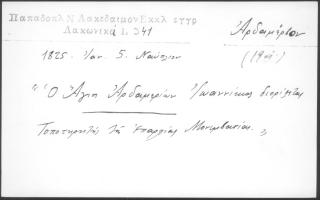 Παπαδοπλ Ν Λακεδαιμον Εκκλ
Λακωνικά L 341
Ἀρδαμέριον
1825. Ἰαν. 5. Ναύπλιον
"Ὁ Ἅγιος Ἀρδαμερίων Ἰωαννίκιος διορίζεται
Τοποτηρητὴς τῆς Ἐπαρχίας Μονεμβασίας."